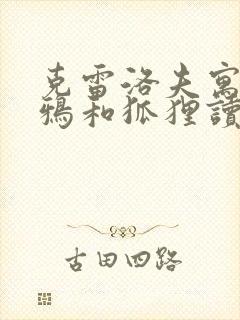 克雷洛夫寓
鴉和狐狸讀
古田四路